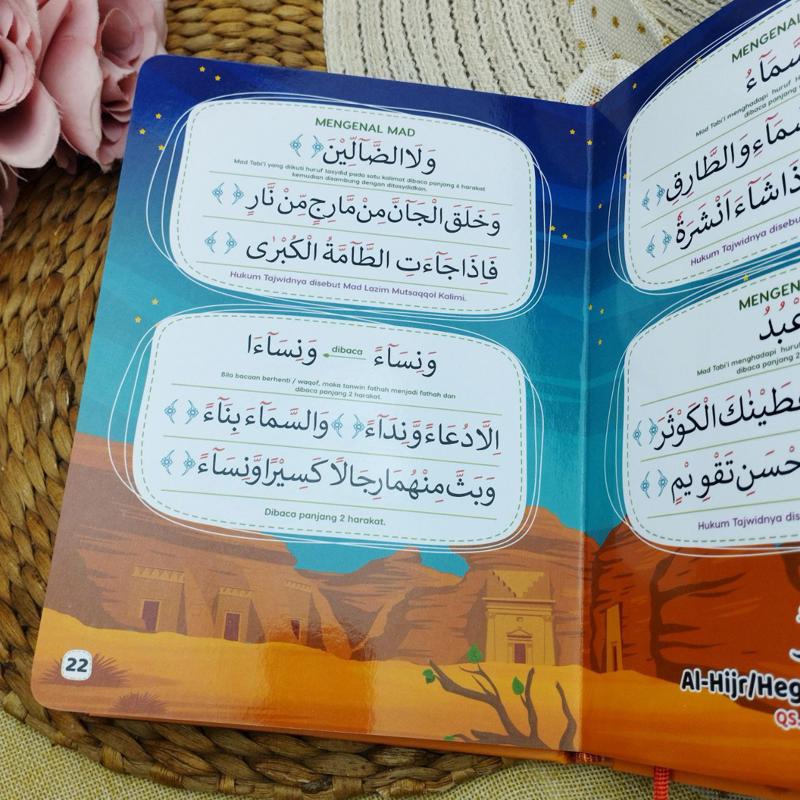 MENGENAL MAD
وَلَا الضَّآلِّيْنَ
Mad Tabi'i yang diikuti huruf tasydid pada satu kalimat dibaca panjang 6 harakat
kemudian disambung dengan ditasydidkan.
وَخَلَقَ الْجَآنَّ مِنْ مَّارِجٍ مِّنْ نَّارٍ
فَاِذَا جَآءَتِ الطَّآمَّةُ الْكُبْرٰى
Hukum Tajwidnya disebut Mad Lazim Mutsaqqol Kalimi.
وَنِسَآءً dibaca وَنِسَآءَا
Bila bacaan berhenti / waqof, maka tanwin fathah menjadi fathah dan
dibaca panjang 2 harakat.
اِلَّا دُعَاءً وَّنِدَآءً وَالسَّمَآءَ بِنَآءً
وَبَثَّ مِنْهُمَا رِجَالًا كَسِيْرًا وَّنِسَآءً
Dibaca panjang 2 harakat.
22
MENGENA
سَّمَآءُ
Mad Tabi'i menghadapi huruf
dibaca panjang
سَّمَآءِ وَالطَّارِقِ
ذَا شَآءَ اَنْشَرَهٗ
Hukum Tajwidnya disebu
MENGEN
عْبُدُ
Mad Tabi'i menghadapi huruf
dibaca panjang 2
عْطَيْنٰكَ الْكَوْثَرَ
حْسَنِ تَقْوِيْمٍ
Hukum Tajwidnya dis
Al-Hijr/Heg
QS.